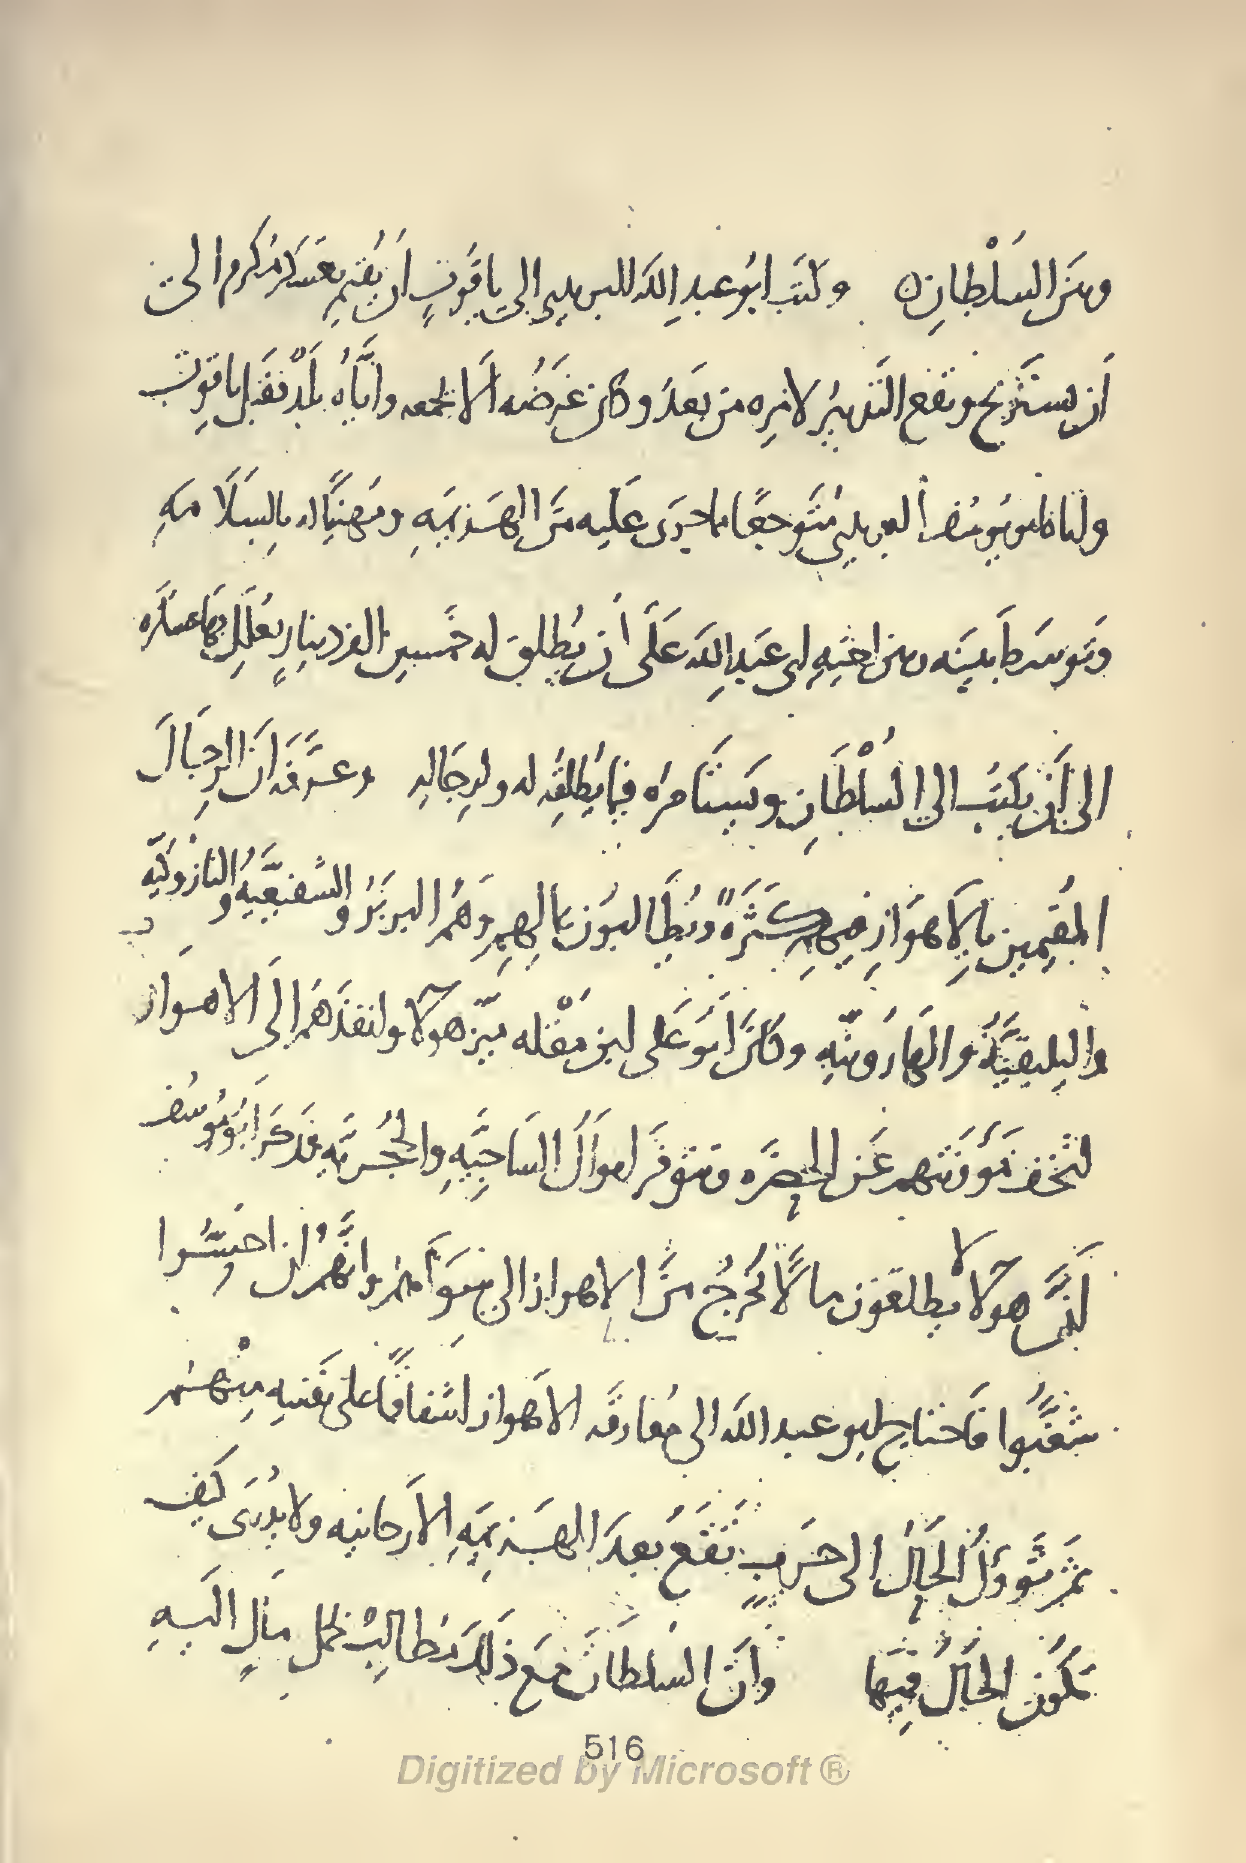 وبين السلطان ه وكتب ابو عبد الله البريدى الى ياقوت ان يقيم بعسكر مكرم الى
ان يستريح ويقع التدبير لامره من بعد وكان غرضه الا يجمعه واياه بلد فقبل ياقوت
واتاه ابو يوسف البريدى متوجعا مما جرى عليه من الهزيمه ومهنيا له بالسلامه
وتوسط بينه وبين اخيه ابى عبد الله على ان يطلق له خمسين الف دينار يعلل بها عسكره
الى ان يكتب الى السلطان ويستامره فيما يطلقه له ولرجاله وعرفه ان الرجال
المقيمين بالاهواز فيهم كثرة ويطالبون بمالهم وهم البربر والشفيعيه والنازوكيه
واليلبقيه والهارونيه وكان ابو على ابن مقله ميز هولا وانفذهم الى الاهواز
لتخف مؤونتهم عن الحضره وتتوفر اموال الساجيه والحجريه فذكر ابو يوسف
ان هولا لا يطلقون مالا يخرج من الاهواز الى سواهم وانهم ان احسوا
شغبوا فاحتاج ابو عبد الله الى مفارقه الاهواز اشفاقا على نفسه منهم
ثم تؤول الحال الى حرب تقع بعد الهزيمه الارجانيه ولا يدرى كيف
تكون الحال فيها وان السلطان مع ذلك مطالب بحمل مال اليه
516
Digitized by Microsoft ®